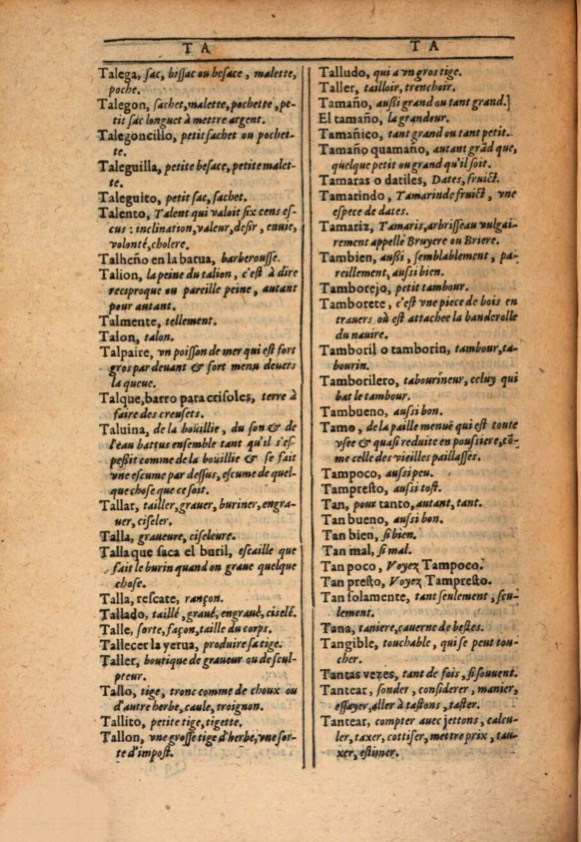 TA
Talega, sac, bissac ou besace, malette,
poche.
Talegon, sachet, malette, pochette, pe-
tit sac longuet à mettre argent.
Talegoncillo, petit sachet ou pochet-
te.
Taleguilla, petite besace, petite malet-
te.
Taleguito, petit sac, sachet.
Talento, Talent qui valoit six cens es-
cus : inclination, valeur, desir, enuie,
volonté, cholere.
Talheño en la barua, barberousse.
Talion, la peine du talion, c'est à dire
reciproque ou pareille peine, autant
pour autant.
Talmente, tellement.
Talon, talon.
Talpaire, vn poisson de mer qui est fort
gros par deuant & fort menu deuers
la queue.
Talque, barro para crisoles, terre à
faire des creusets.
Taluina, de la boüillie, du son & de
l'eau battus ensemble tant qu'il s'es-
pessit comme de la boüillie & se fait
vne escume par dessus, escume de quel-
que chose que ce soit.
Tallar, tailler, grauer, buriner, engra-
uer, ciseler.
Talla, graueure, ciseleure.
Talla que saca el buril, escaille que
fait le burin quand on graue quelque
chose.
Talla, rescate, rançon.
Tallado, taillé, graué, engraué, ciselé.
Talle, sorte, façon, taille du corps.
Tallecer la yerua, produire sa tige.
Taller, boutique de graueur ou de scul-
pteur.
Tallo, tige, tronc comme de choux ou
d'autre herbe, caule, troignon.
Tallito, petite tige, tigette.
Tallon, vne grosse tige d'herbe, vne sor-
te d'impost.
TA
Talludo, qui a vn gros tige.
Taller, tailloir, trenchoir.
Tamaño, aussi grand ou tant grand.]
El tamaño, la grandeur.
Tamañico, tant grand ou tant petit.
Tamaño quamaño, autant grãd que,
quelque petit ou grand qu'il soit.
Tamaras o datiles, Dates, fruict.
Tamarindo, Tamarinde fruict, vne
espece de dates.
Tamariz, Tamaris, arbrisseau vulgai-
rement appellé Bruyere ou Briere.
Tambien, aussi, semblablement, pa-
reillement, aussi bien.
Tamborejo, petit tambour.
Tamborete, c'est vne piece de bois en
trauers où est attachee la banderolle
du nauire.
Tamboril o tamborin, tambour, ta-
bourin.
Tamborilero, tabourineur, celuy qui
bat le tambour.
Tambueno, aussi bon.
Tamo, de la paille menuë qui est toute
vsee & quasi reduite en poussiere, cõ-
me celle des vieilles paillasses.
Tampoco, aussi peu.
Tampresto, aussi tost.
Tan, pour tanto, autant, tant.
Tan bueno, aussi bon.
Tan bien, si bien.
Tan mal, si mal.
Tan poco, Voyez Tampoco.
Tan presto, Voyez Tampresto.
Tan solamente, tant seulement, seu-
lement.
Tana, taniere, cauerne de bestes.
Tangible, touchable, qui se peut tou-
cher.
Tantas vezes, tant de fois, si souuent.
Tantear, sonder, considerer, manier,
essayer, aller à tastons, taster.
Tantear, compter auec jettons, calcu-
ler, taxer, cottiser, mettre prix, tau-
xer, estimer.